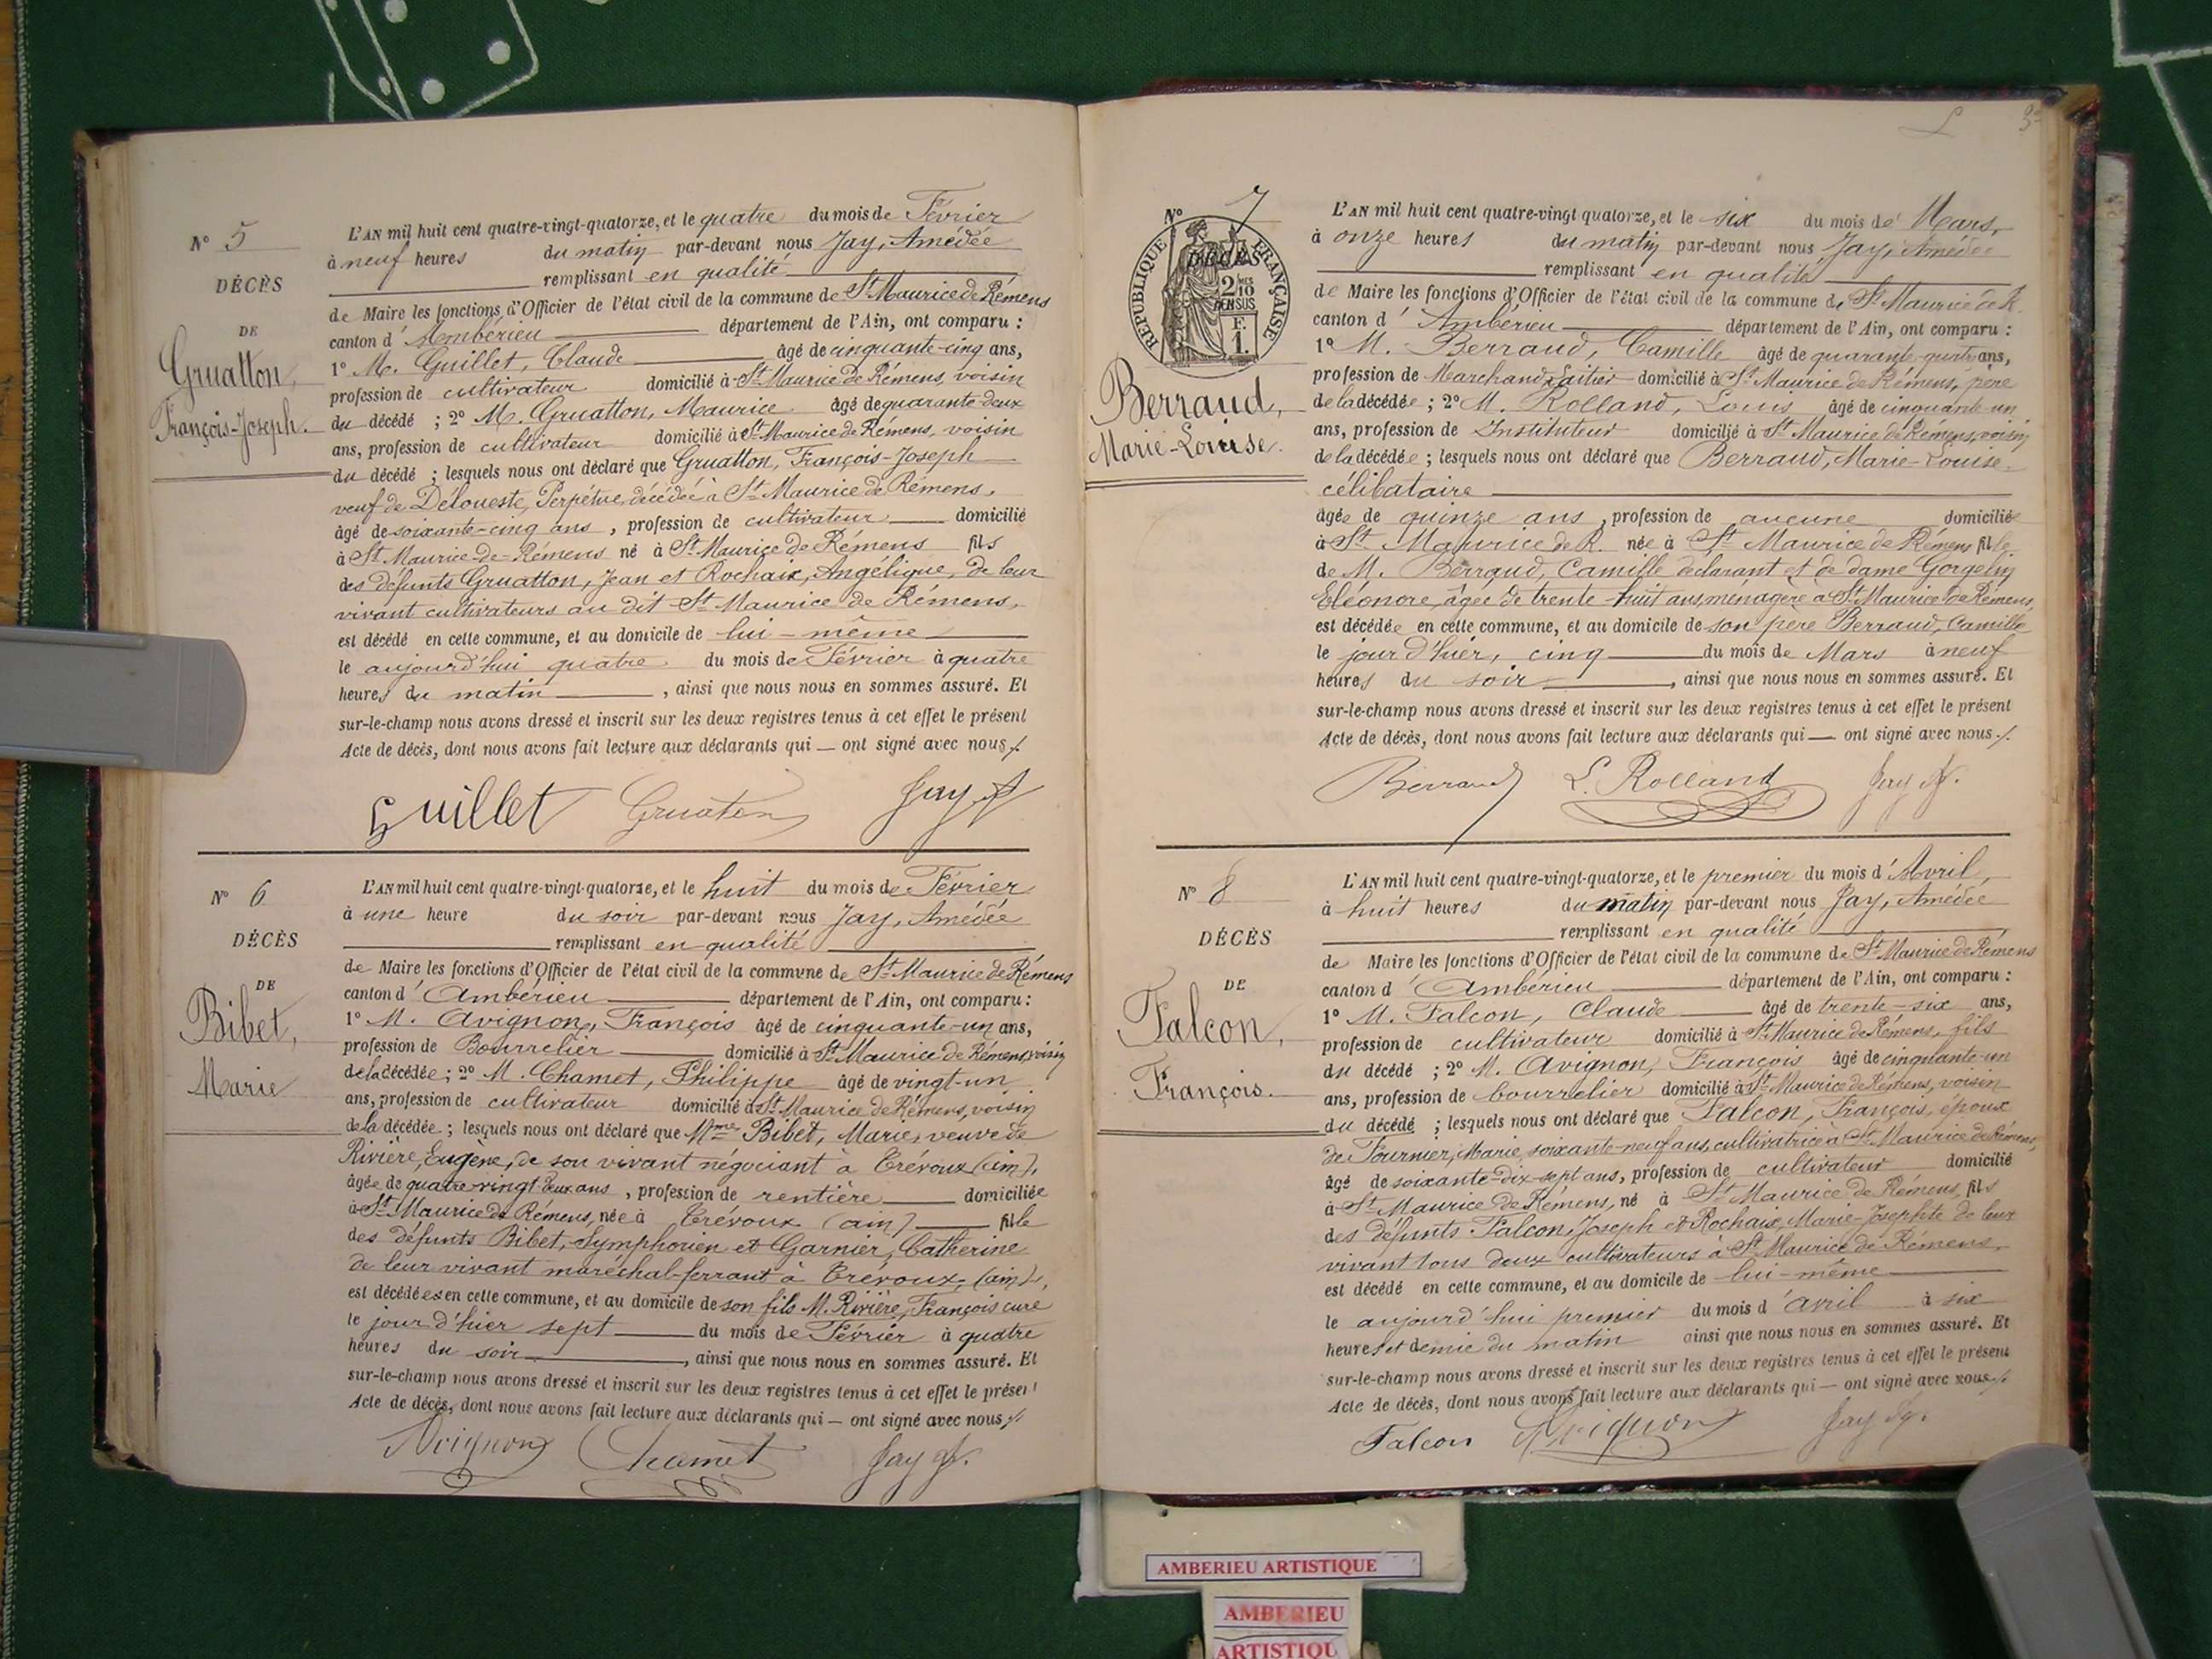 N° 5
DÉCÈS
DE
Gruatton,
François-Joseph.
L'AN mil huit cent quatre-vingt-quatorze, et le quatre du mois de Février
à neuf heures du matin par-devant nous Jay, Amédée
remplissant en qualité
de Maire les fonctions d'Officier de l'état civil de la commune de St Maurice de Rémens
canton d'Ambérieu département de l'Ain, ont comparu :
1° M. Guillet, Claude âgé de cinquante-cinq ans,
profession de cultivateur domicilié à St Maurice de Rémens, voisin
du décédé ; 2° M. Gruatton, Maurice âgé de quarante-deux
ans, profession de cultivateur domicilié à St Maurice de Rémens, voisin
du décédé ; lesquels nous ont déclaré que Gruatton, François-Joseph
veuf de Déloueste, Perpétue, décédée à St Maurice de Rémens,
âgé de soixante-cinq ans, profession de cultivateur domicilié
à St Maurice-de-Rémens né à St Maurice de Rémens fils
des défunts Gruatton, Jean et Rochaix, Angélique, de leur
vivant cultivateurs au dit St Maurice de Rémens,
est décédé en cette commune, et au domicile de lui-même
le aujourd'hui quatre du mois de Février à quatre
heures du matin, ainsi que nous nous en sommes assuré. Et
sur-le-champ nous avons dressé et inscrit sur les deux registres tenus à cet effet le présent
Acte de décès, dont nous avons fait lecture aux déclarants qui — ont signé avec nous ./.
Guillet Gruaton Jay A
N° 6
DÉCÈS
DE
Bibet,
Marie
L'AN mil huit cent quatre-vingt-quatorze, et le huit du mois de Février
à une heure du soir par-devant nous Jay, Amédée
remplissant en qualité
de Maire les fonctions d'Officier de l'état civil de la commune de St Maurice de Rémens
canton d'Ambérieu département de l'Ain, ont comparu :
1° M. Avignon, François âgé de cinquante-un ans,
profession de Bourrelier domicilié à St Maurice de Rémens, voisin
de la décédée ; 2° M. Chamet, Philippe âgé de vingt-un
ans, profession de cultivateur domicilié à St Maurice de Rémens, voisin
de la décédée ; lesquels nous ont déclaré que Mme Bibet, Marie, veuve de
Rivière, Eugène, de son vivant négociant à Trévoux (ain),
âgée de quatre-vingt-deux ans, profession de rentière domiciliée
à St Maurice de Rémens, née à Trévoux (ain) fille
des défunts Bibet, Symphorien et Garnier, Catherine
de leur vivant maréchal-ferrant à Trévoux, (ain),
est décédée en cette commune, et au domicile de son fils M. Rivière, François curé
le jour d'hier sept du mois de Février à quatre
heures du soir, ainsi que nous nous en sommes assuré. Et
sur-le-champ nous avons dressé et inscrit sur les deux registres tenus à cet effet le présent
Acte de décès, dont nous avons fait lecture aux déclarants qui — ont signé avec nous ./.
Avignon Chamet Jay A.
3
N° 7
RÉPUBLIQUE FRANÇAISE
DÉCÈS
2 MES
10
EN SUS
F.
1.
Berraud,
Marie-Louise.
L'AN mil huit cent quatre-vingt quatorze, et le six du mois de Mars,
à onze heures du matin par-devant nous Jay, Amédée
remplissant en qualité
de Maire les fonctions d'Officier de l'état civil de la commune de St Maurice de R.
canton d'Ambérieu département de l'Ain, ont comparu :
1° M. Berraud, Camille âgé de quarante-quatre ans,
profession de Marchand Laitier domicilié à St Maurice de Rémens, père
de la décédée ; 2° M. Rolland, Louis âgé de cinquante-un
ans, profession de Instituteur domicilié à St Maurice de Rémens, voisin
de la décédée ; lesquels nous ont déclaré que Berraud, Marie-Louise.
célibataire
âgée de quinze ans, profession de aucune domiciliée
à St Maurice de R. née à St Maurice de Rémens fille
de M. Berraud, Camille déclarant et de dame Gorgelin
Eléonore, âgée de trente-huit ans, ménagère à St Maurice de Rémens,
est décédée en cette commune, et au domicile de son père Berraud, Camille
le jour d'hier, cinq du mois de Mars à neuf
heures du soir, ainsi que nous nous en sommes assuré. Et
sur-le-champ nous avons dressé et inscrit sur les deux registres tenus à cet effet le présent
Acte de décès, dont nous avons fait lecture aux déclarants qui — ont signé avec nous ./.
Berraud L. Rolland Jay A.
N° 8
DÉCÈS
DE
Falcon,
François.
L'AN mil huit cent quatre-vingt-quatorze, et le premier du mois d'Avril,
à huit heures du matin par-devant nous Jay, Amédée
remplissant en qualité
de Maire les fonctions d'Officier de l'état civil de la commune de St Maurice de Rémens
canton d'Ambérieu département de l'Ain, ont comparu :
1° M. Falcon, Claude âgé de trente-six ans,
profession de cultivateur domicilié à St Maurice de Rémens, fils
du décédé ; 2° M. Avignon, François âgé de cinquante-un
ans, profession de bourrelier domicilié à St Maurice de Rémens, voisin
du décédé ; lesquels nous ont déclaré que Falcon, François, époux
de Fournier, Marie, soixante-neuf ans, cultivatrice à St Maurice de Rémens,
âgé de soixante-dix-sept ans, profession de cultivateur domicilié
à St Maurice de Rémens, né à St Maurice de Rémens, fils
des défunts Falcon, Joseph et Rochaix, Marie-Josephte de leur
vivant tous deux cultivateurs à St Maurice de Rémens,
est décédé en cette commune, et au domicile de lui-même
le aujourd'hui premier du mois d'avril à six
heures et demie du matin ainsi que nous nous en sommes assuré. Et
sur-le-champ nous avons dressé et inscrit sur les deux registres tenus à cet effet le présent
Acte de décès, dont nous avons fait lecture aux déclarants qui — ont signé avec nous ./.
Falcon Avignon Jay A.
AMBERIEU ARTISTIQUE
AMBERIEU
ARTISTIQU